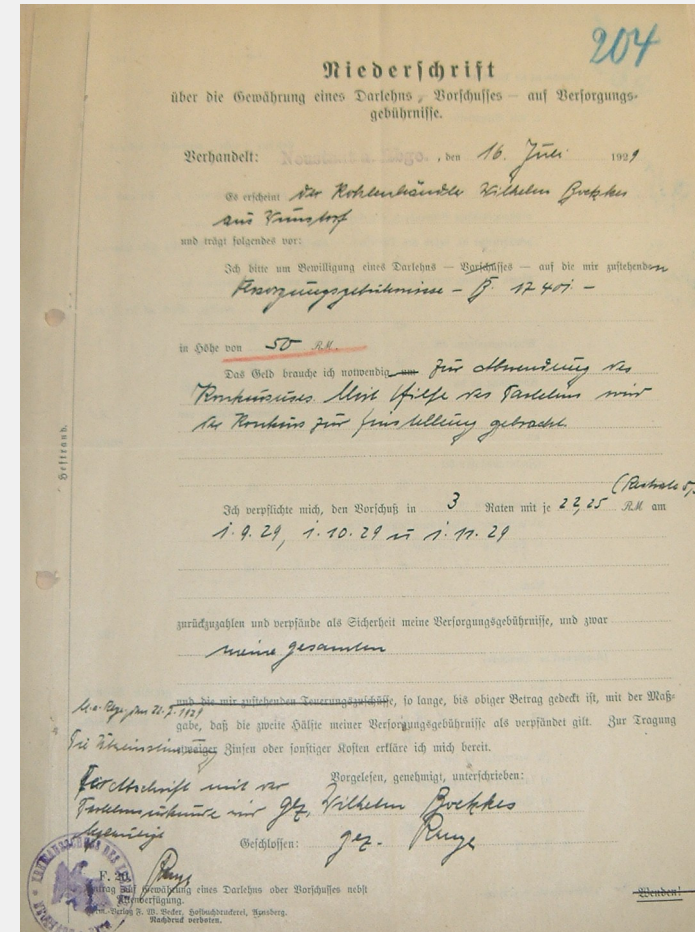 204
Niederschrift
über die Gewährung eines Darlehns, Vorschusses — auf Versorgungs-
gebührnisse.
Verhandelt: Neustadt a. Rbge., den 16. Juli 1929
Es erscheint der Kohlenhändler Wilhelm
aus Wunstorf
und trägt folgendes vor:
Ich bitte um Bewilligung eines Darlehns — Vorschusses — auf die mir zustehenden
Versorgungsgebührnisse — 17401 —
in Höhe von 50 RM.
Das Geld brauche ich notwendig um zur Abwendung des
Konkurses. Mit Hilfe des Darlehns wird
der Konkurs zur Einstellung gebracht.
Heftrand.
(Restrate 5,
Ich verpflichte mich, den Vorschuß in 3 Raten mit je 22,25 RM am
1.9.29, 1.10.29 u 1.11.29
zurückzuzahlen und verpfände als Sicherheit meine Versorgungsgebührnisse, und zwar
meine gesamten
und die mir zustehenden Teuerungszuschüsse, so lange, bis obiger Betrag gedeckt ist, mit der Maß-
gabe, daß die zweite Hälfte meiner Versorgungsgebührnisse als verpfändet gilt. Zur Tragung
etwaiger Zinsen oder sonstiger Kosten erkläre ich mich bereit.
Vorgelesen, genehmigt, unterschrieben:
gez. Wilhelm
Geschlossen: gez.
Die Übereinstimmung
der Abschrift mit der
F. 20.
Antrag auf Gewährung eines Darlehns oder Vorschusses nebst
Aktenverfügung.
Verlag F. W. Becker, Hofbuchdruckerei, Arnsberg.
Nachdruck verboten.
Wenden!